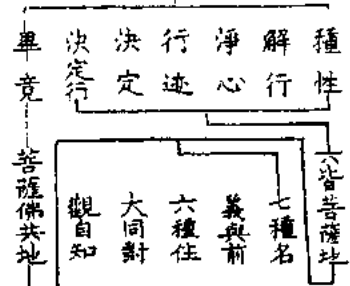 種性
解行
淨心
行迹
決定
決定行
畢竟
六皆菩薩地
七種名
義與前
六種住
大同對
觀自知
菩薩佛共地